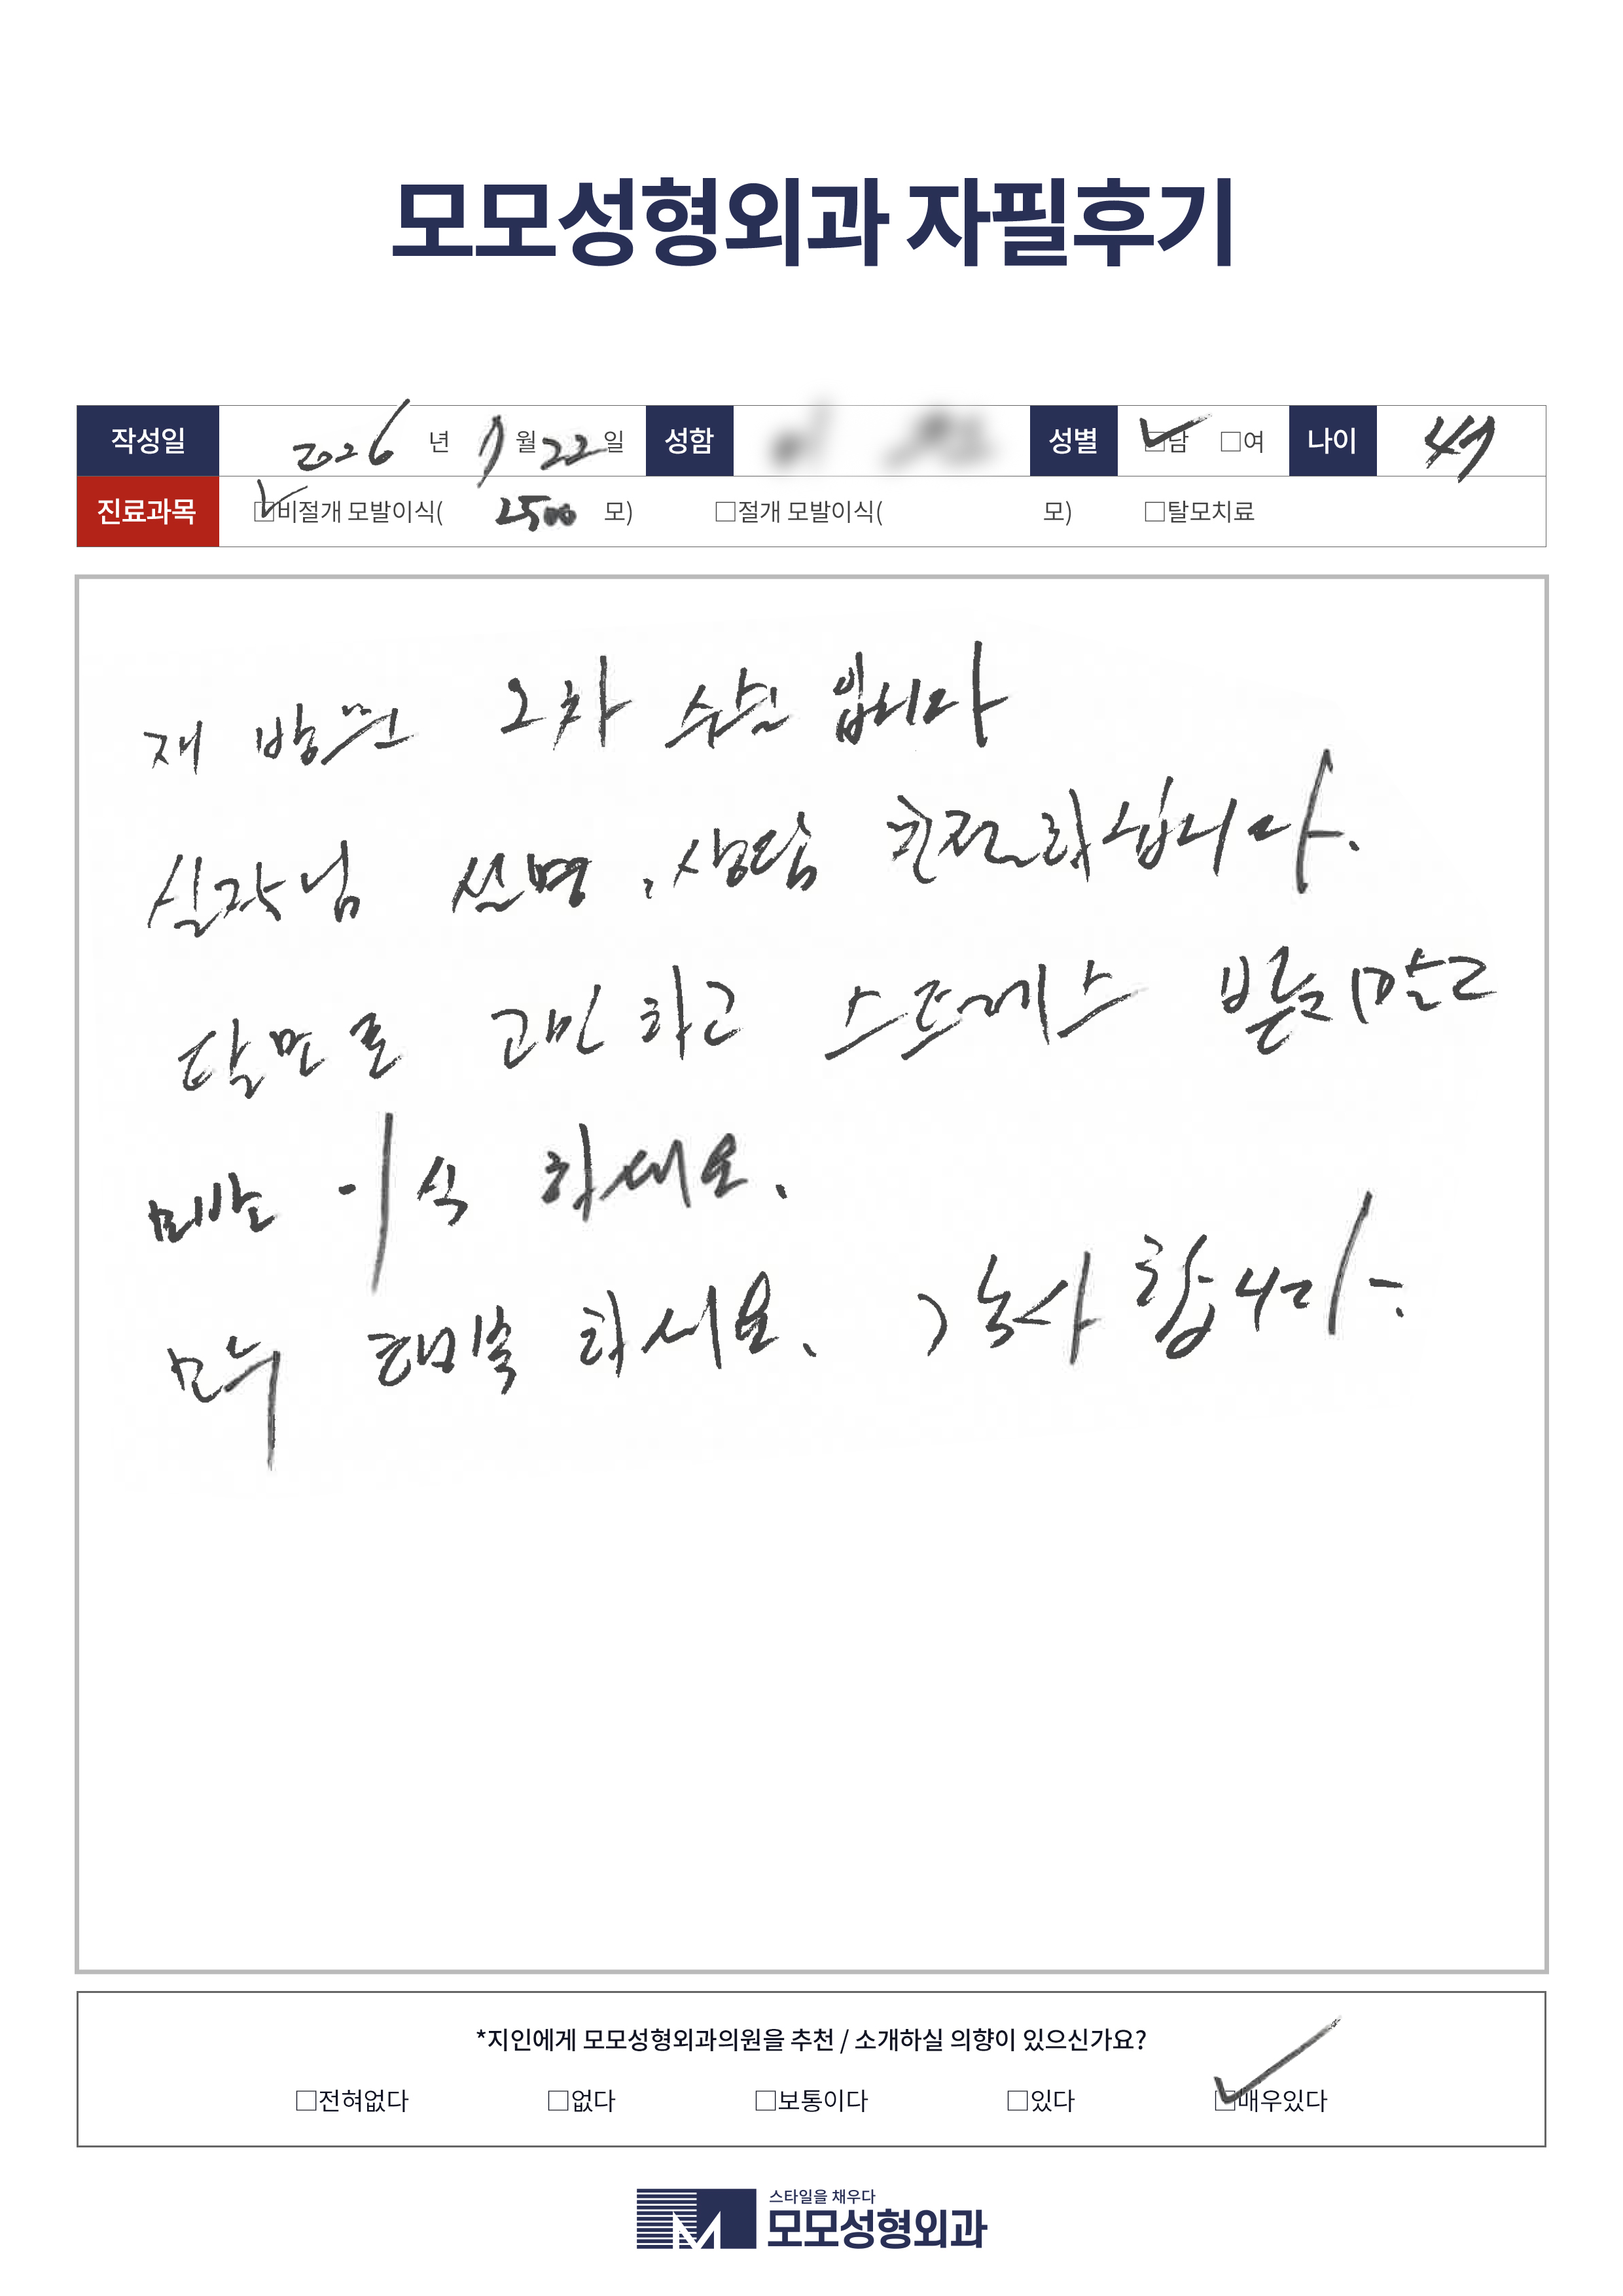 모모성형외과 자필후기
작성일 2026년 1월 22일 성함 성별 □남 □여 나이
진료과목 □비절개 모발이식( 2500 모) □절개 모발이식( 모) □탈모치료
재 방문 2차 수술 입니다
실장님 설명, 상담 친절하십니다.
탈모로 고민하고 스트레스 받지말고
모발 이식 하세요.
모두 행복 하세요. 감사합니다.
*지인에게 모모성형외과의원을 추천 / 소개하실 의향이 있으신가요?
□전혀없다 □없다 □보통이다 □있다 □매우있다
스타일을 채우다
모모성형외과